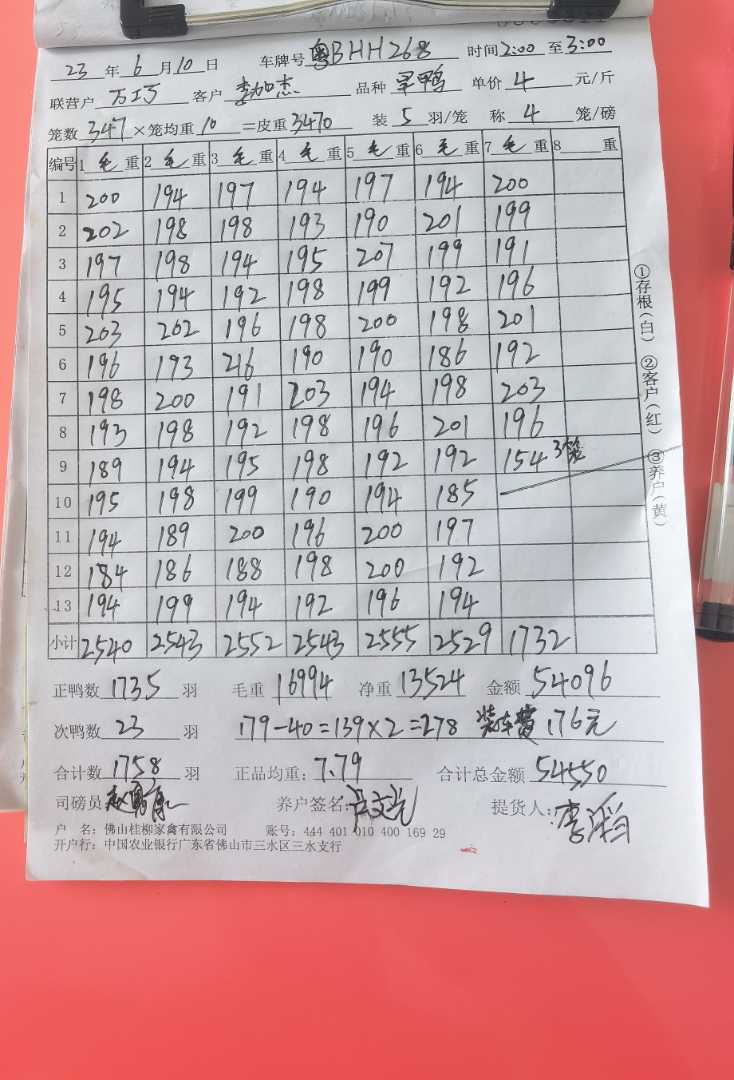 23 年 6 月 10 日 车牌号 粤BHH268 时间 2:00 至 3:00
联营户 客户 李如杰 品种 旱鸭 单价 4 元/斤
笼数 347 ×笼均重 10 =皮重 3470 装 5 羽/笼 称 4 笼/磅
编号 1 毛 重 2 毛 重 3 毛 重 4 毛 重 5 毛 重 6 毛 重 7 毛 重 8 重
1 200 194 197 194 197 194 200
2 202 198 198 193 190 201 199
3 197 198 194 195 207 199 191
4 195 194 192 198 199 192 196
5 203 202 196 198 200 198 201
6 196 193 216 190 190 186 192
7 198 200 191 203 194 198 203
8 193 198 192 198 196 201 196
9 189 194 195 198 192 192 154 3笼
10 195 198 199 190 194 185
11 194 189 200 196 200 197
12 184 186 188 198 200 192
13 194 199 194 192 196 194
小计 2540 2543 2552 2543 2555 2529 1732
正鸭数 1735 羽 毛重 16994 净重 13524 金额 54096
次鸭数 23 羽 179-40=139×2=278 装车费 176元
合计数 1758 羽 正品均重: 7.79 合计总金额 54550
司磅员: 养户签名: 提货人:
户 名: 佛山桂柳家禽有限公司 账号: 444 401 010 400 169 29
开户行: 中国农业银行广东省佛山市三水区三水支行
①存根(白) ②客户(红) ③养户(黄)